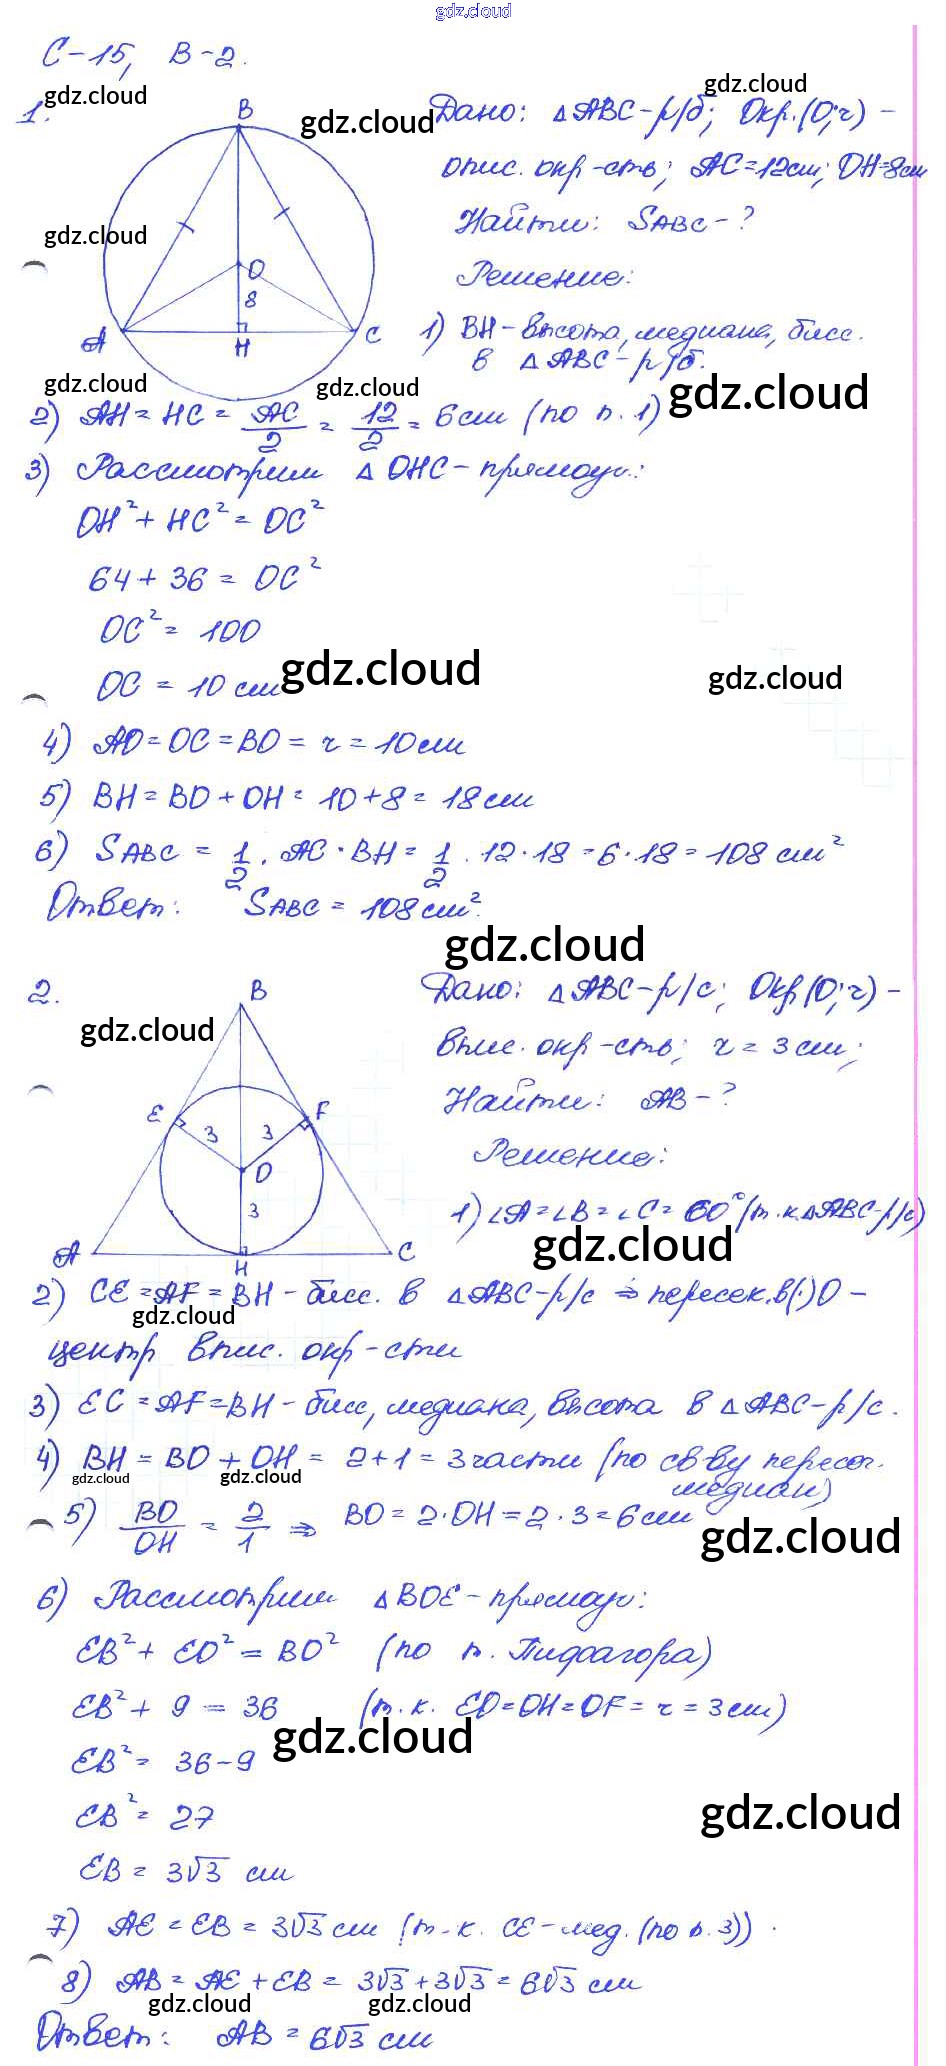 gdz.cloud
С-15, В-2.
gdz.cloud
gdz.cloud
1.
B
gdz.cloud
Дано: △ABC-р/б; Окр.(O;r) -
опис. окр-сть; AC=12см; OH=8см
gdz.cloud
Найти: SABC-?
O
8
Решение:
A
H
C
1) BH-высота, медиана, бисс.
в △ABC-р/б.
gdz.cloud
gdz.cloud
gdz.cloud
2) AH = HC = AC/2 = 12/2 = 6см (по п.1)
3) Рассмотрим △OHC-прямоуг.:
OH² + HC² = OC²
64 + 36 = OC²
OC² = 100
OC = 10 см
gdz.cloud
gdz.cloud
4) AO=OC=BO = r = 10см
5) BH = BO + OH = 10+8 = 18см
6) SABC = 1/2 · AC · BH = 1/2 · 12·18 = 6·18 = 108 см²
Ответ: SABC = 108см².
gdz.cloud
2.
B
gdz.cloud
Дано: △ABC-р/с; Окр(O;r)-
впис. окр-сть; r = 3см;
E
F
3
3
Найти: AB-?
O
Решение:
3
A
H
C
1) ∠A=∠B=∠C= 60° (т.к.△ABC-р/с)
gdz.cloud
2) CE=AF=BH-бисс. в △ABC-р/с ⇒ пересек.в(·)O -
gdz.cloud
центр впис. окр-сти
3) EC=AF=BH-бисс, медиана, высота в △ABC-р/с.
4) BH = BO + OH = 2+1 = 3части (по св-ву пересеч.
медиан)
gdz.cloud
gdz.cloud
5) BO/OH = 2/1 ⇒ BO = 2·OH = 2·3=6см
gdz.cloud
6) Рассмотрим △BOE-прямоуг:
EB² + EO² = BO² (по т. Пифагора)
EB² + 9 = 36 (т.к. EO=OH=OF=r=3см)
gdz.cloud
EB² = 36-9
gdz.cloud
EB² = 27
EB = 3√3 см
7) AE = EB = 3√3 см (т-к. CE-мед. (по п.3)) .
8) AB = AE + EB = 3√3+3√3 = 6√3 см
gdz.cloud
gdz.cloud
Ответ: AB = 6√3 см